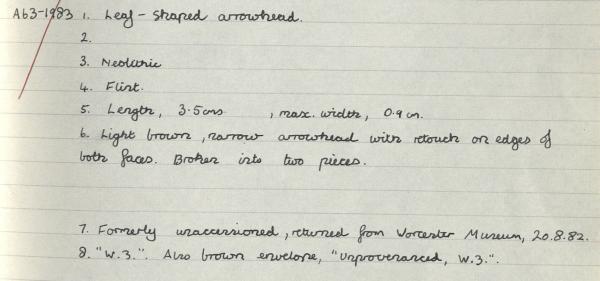 A63-1983 1. Leaf-shaped arrowhead.
2.
3. Neolithic
4. Flint.
5. Length, 3.5cms , max. width, 0.9cm.
6. Light brown, narrow arrowhead with retouch on edges of
both faces. Broken into two pieces.
7. Formerly unaccessioned, returned from Worcester Museum, 20.8.82.
8. "W.3.". Also brown envelope, "Unprovenanced, W.3.".